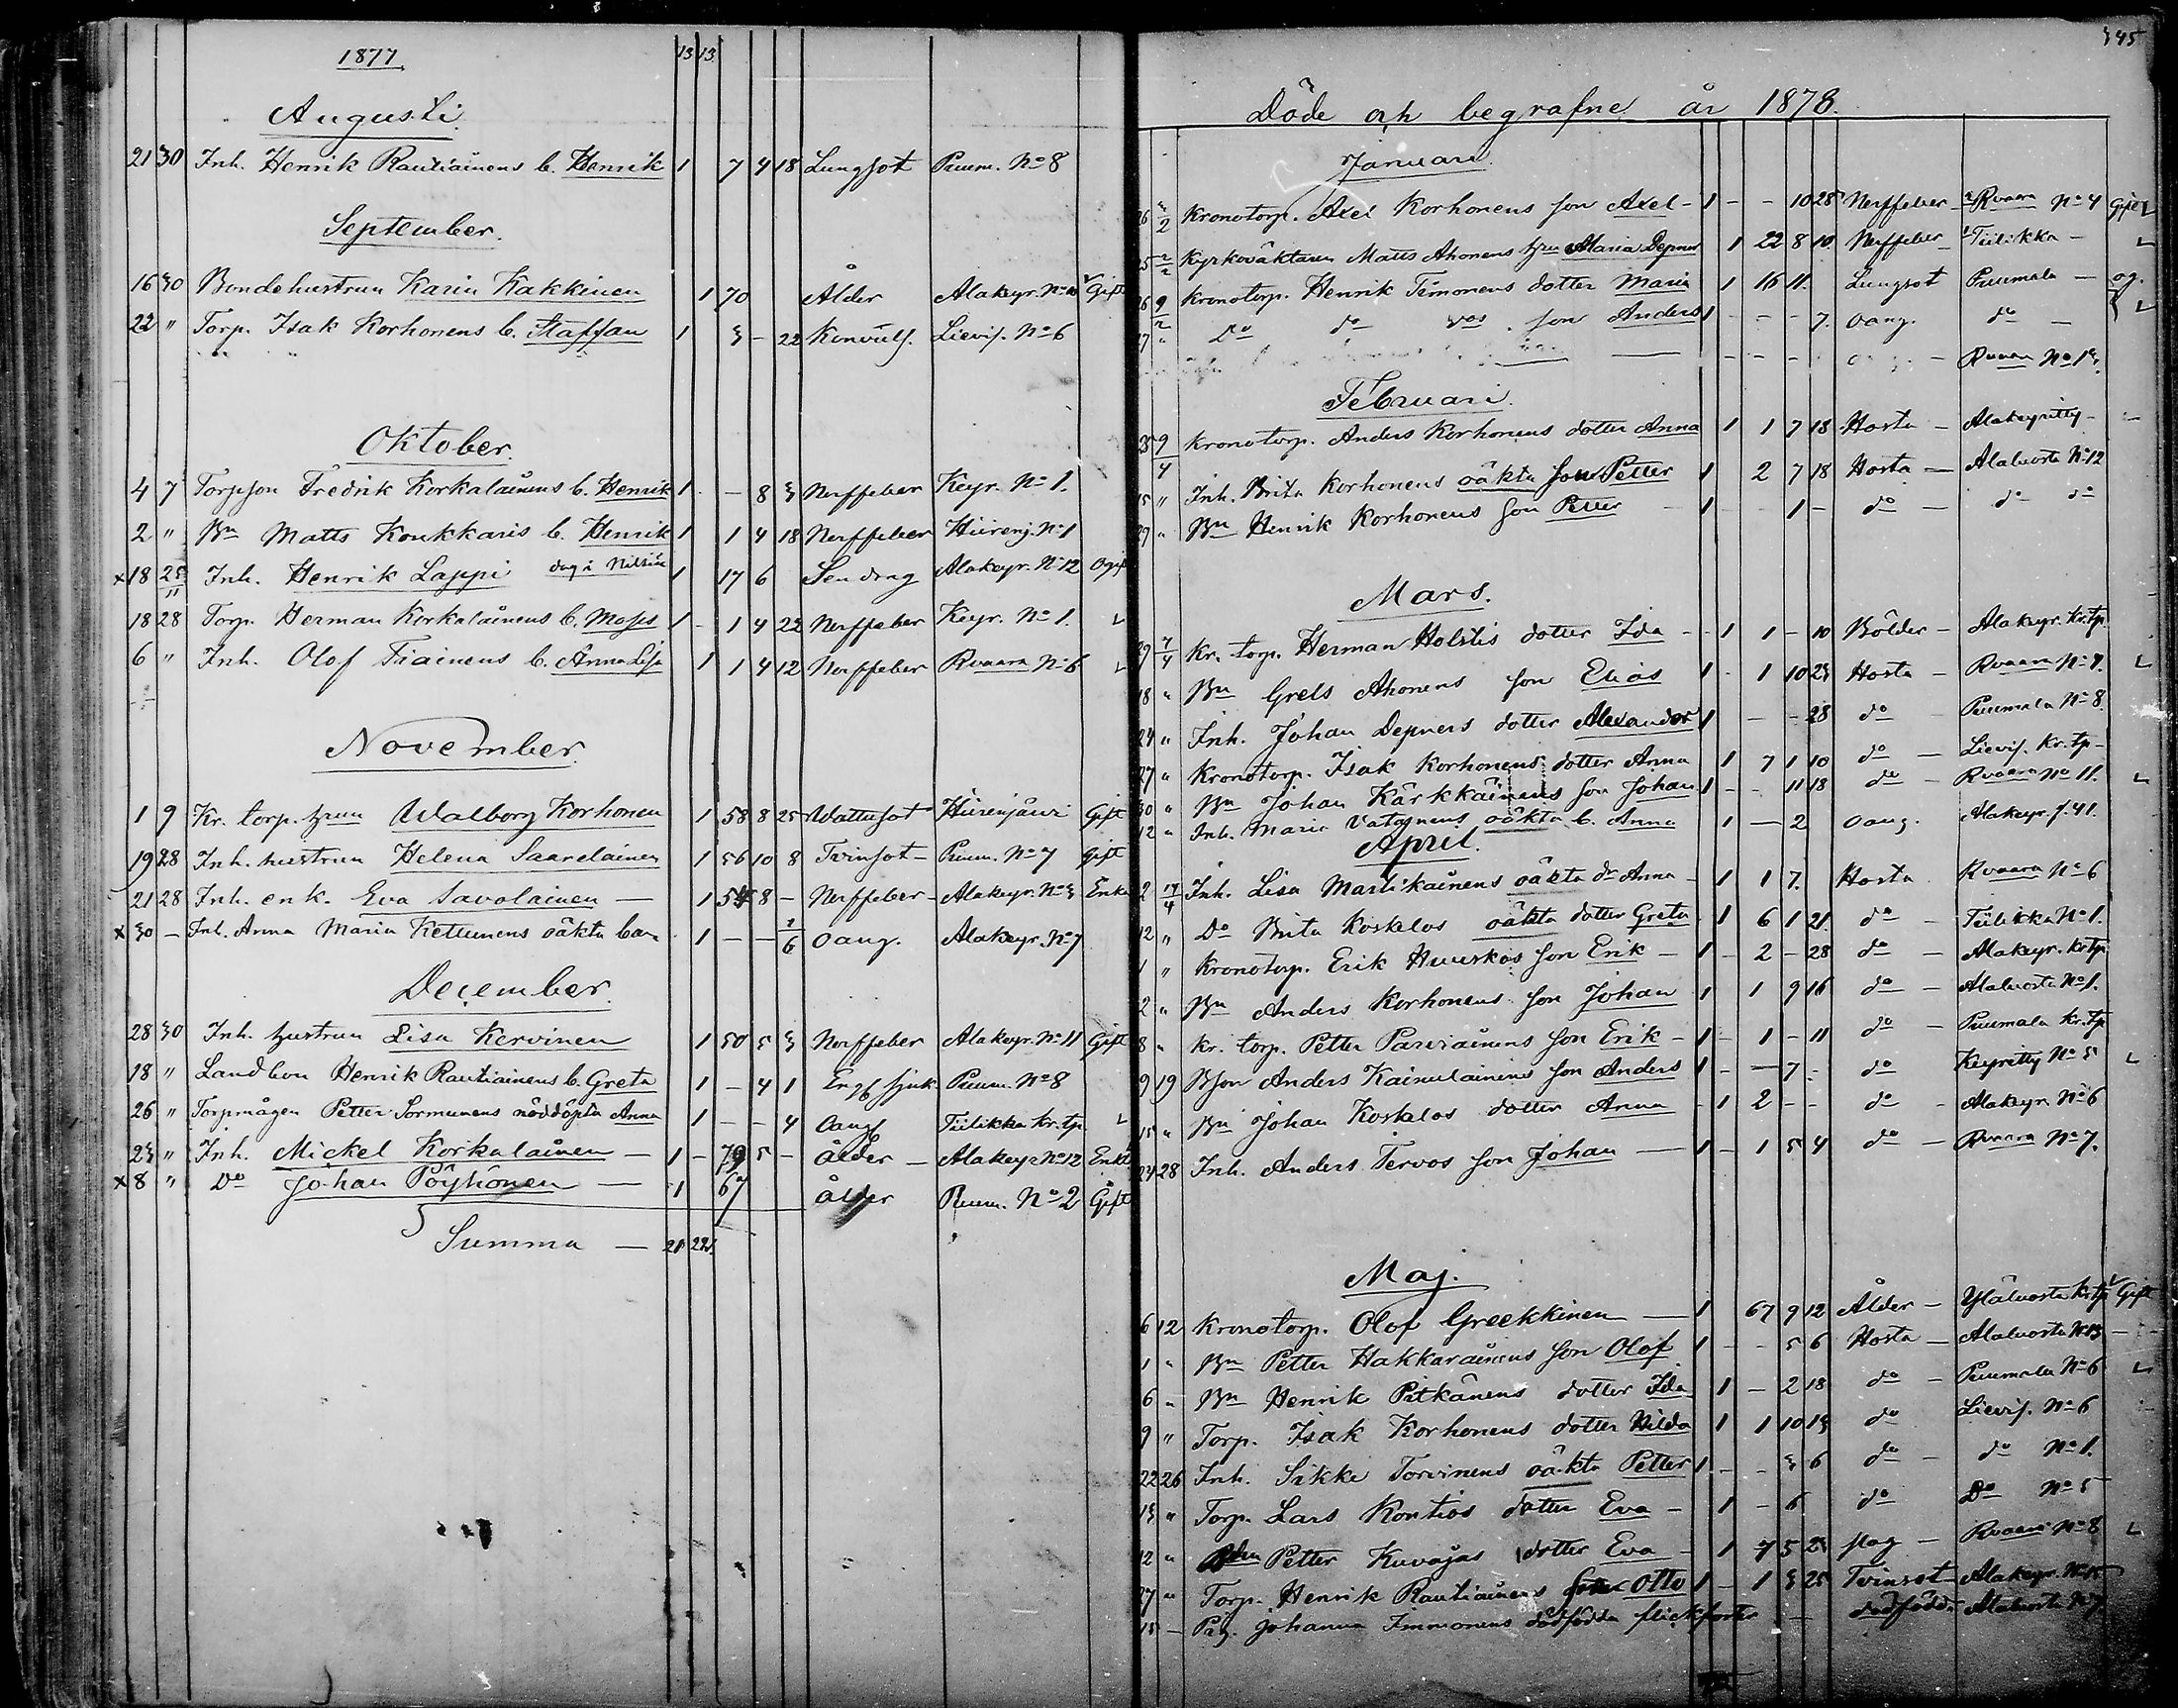 1877. 13 13
Augusti.
21 30 Inh. Henrik Rautiainens b. Henrik 1 7 4 18 Lungsot Puum. No 8
September.
16 30 Bondehustrun Karin Kakkinen 1 70 Ålder Alakeyr. No 10 Gift
22 " Torp. Isak Korhonens b. Staffan 1 3 - 22 Konvuls. Lievis. No 6
Oktober.
4 7 Torpson Fredrik Korkalainens b. Henrik 1 - 8 3 Nerffeber Keyr. No 1.
2 " Bn Matts Koukkaris b. Henrik 1 1 4 18 Nerffeber Hiirenj. No 1
x 18 25/11 Inh. Henrik Lappi dog i Nilsiä 1 17 6 Sendrag Alakeyr. No 12 Ogift
18 28 Torp. Herman Korkalainens b. Moses 1 - 1 4 22 Nerffeber Keyr. No 1.
6 " Inh. Olof Tiainens b. Anna Lisa 1 1 4 12 Nerffeber Rvaara No 6
November.
1 9 Kr. torp. hrun Walborg Korhonen 1 58 8 25 Wattusot Hiirenjärvi Gift
19 28 Inh. hustrun Helena Saarelainen 1 56 10 8 Tvinsot - Puum. No 7 Gift
21 28 Inh. enk. Eva Savolainen - 1 54 8 - Nerffeber - Alakeyr. No 3 Enka
x 30 - Inh. Anna Maria Kettunens oäkta barn 1 - - 1/6 oang. Alakeyr. No 7
December.
28 30 Inh. hustrun Lisa Kervinen 1 50 5 3 Nerffeber Alakeyr. No 11 Gift
18 " Landbon Henrik Rautiainens b. Greta 1 - 4 1 Engl sjuk. Puum. No 8
26 " Torpmågen Petter Sormunens nöddöpta Anna 1 - - 4 Oang Tiilikka Kr. tp.
23 " Inh. Mickel Korkalainen - 1 - 79 5 - ålder - Alakeyr No 12 Enkl
x 8 " Do Johan Pöyhönen - 1 67 ålder Puum. No 2 Gift
Summa - 21 22
345
Döde och begrafne år 1878.
Januari
26 3/2 Kronotorp. Axel Korhonens son Axel - 1 - - 10 28 Nerffeber - Rvaara No 4
25 2/2 Kyrkoväktaren Matts Ahonens hru Maria Depner 1 22 8 10 Nerffeber Tiilikka - Gift
26 9/2 Kronotorp. Henrik Timonens dotter Maria 1 16 11. Lungsot Puumala - og.
27 " Do do dos son Anders 1 - - - 7. oang. do -
- Rvaara No 13
Februari.
25 9/4 Kronotorp. Anders Korhonens dotter Anna 1 1 7 18 Hosta - Alakeyritty -
15 " Inh. Brita Korhonens oäkta son Petter 1 2 7 18 Hosta - Alaluosta No 12
29 " Bn Henrik Korhonens son Petter - 1 - 1 - do - do do
Mars.
29 7/4 Kr. torp. Herman Holstis dotter Ida - 1 1 - 10 Bölder - Alakeyr. Kr. tp.
18 " Bn Grels Ahonens son Elias 1 - 1 10 23 Hosta - Rvaara No 9.
24 " Inh. Johan Depners dotter Alexander 1 - - 28 do - Puumala No 8.
27 " Kronotorp. Isak Korhonens dotter Anna 1 7 1 10 do - Lievis. Kr. tp -
30 " Bn Johan Kärkkäinens son Johan 1 - - 11 18 do - Rvaara No 11.
12 " Inh. Maria Vatanens oäkta b. Anna 1 - 2 oang. Alakeyr. f. 41.
April.
2 14/4 Inh. Lisa Martikainens oäkta dr Anna - 1 1 7. Hosta Rvaara No 6
12 " Do Brita Koskelos oäkta dotter Greta 1 6 1 21. do - Tiilikka No 1.
1 " Kronotorp. Erik Huuskos son Erik - 1 - 2 - 28 do - Alakeyr. Kr tp.
2 " Bn Anders Korhonens son Johan 1 1 9 16 do - Alaluosta No 1.
8 " Kr. torp. Petter Parviainens son Erik - 1 - 1 - 11 do - Puumala Kr. tp
9 19 Bson Anders Kainulainens son Anders 1 - - 7. do Keyritty No 5
15 " Bn Johan Koskelos dotter Anna - 1 2 - - do - Alakeyr No 6
24 28 Inh. Anders Tervos son Johan - 1 - 1 5 4 do - Rvaara No 7.
Maj.
6 12 Kronotorp. Olof Greekkinen - 1 67 9 12 Ålder - Yläluosta Kr tp Gift
1 " Bn Petter Hakkarainens son Olof 1 - - 5 6 Hosta - Alaluosta No 13 -
6 " Bn Henrik Pitkänens dotter Ida 1 - 2 18 do - Puumala No 6
9 " Torp. Isak Korhonens dotter Hilda 1 1 10 13 do Lievis. No 6
22 26 Inh. Sikke Torvinens oäkta Petter 1 - - 3 6 do - do No 1.
13 " Torp. Lars Kontios dotter Eva - 1 - 6 do Do No 5
12 " Petter Kuvajas dotter Eva - 1 7 5 23 slag - Rvaara No 8
27 " Torp. Henrik Rautiainens son Otto 1 - 1 3 25 Tvinsot - Alakeyr. No 15
15 - Pig. Johanna Immonens dödfödda flickfoster - dödfödd Alaluosta No 7